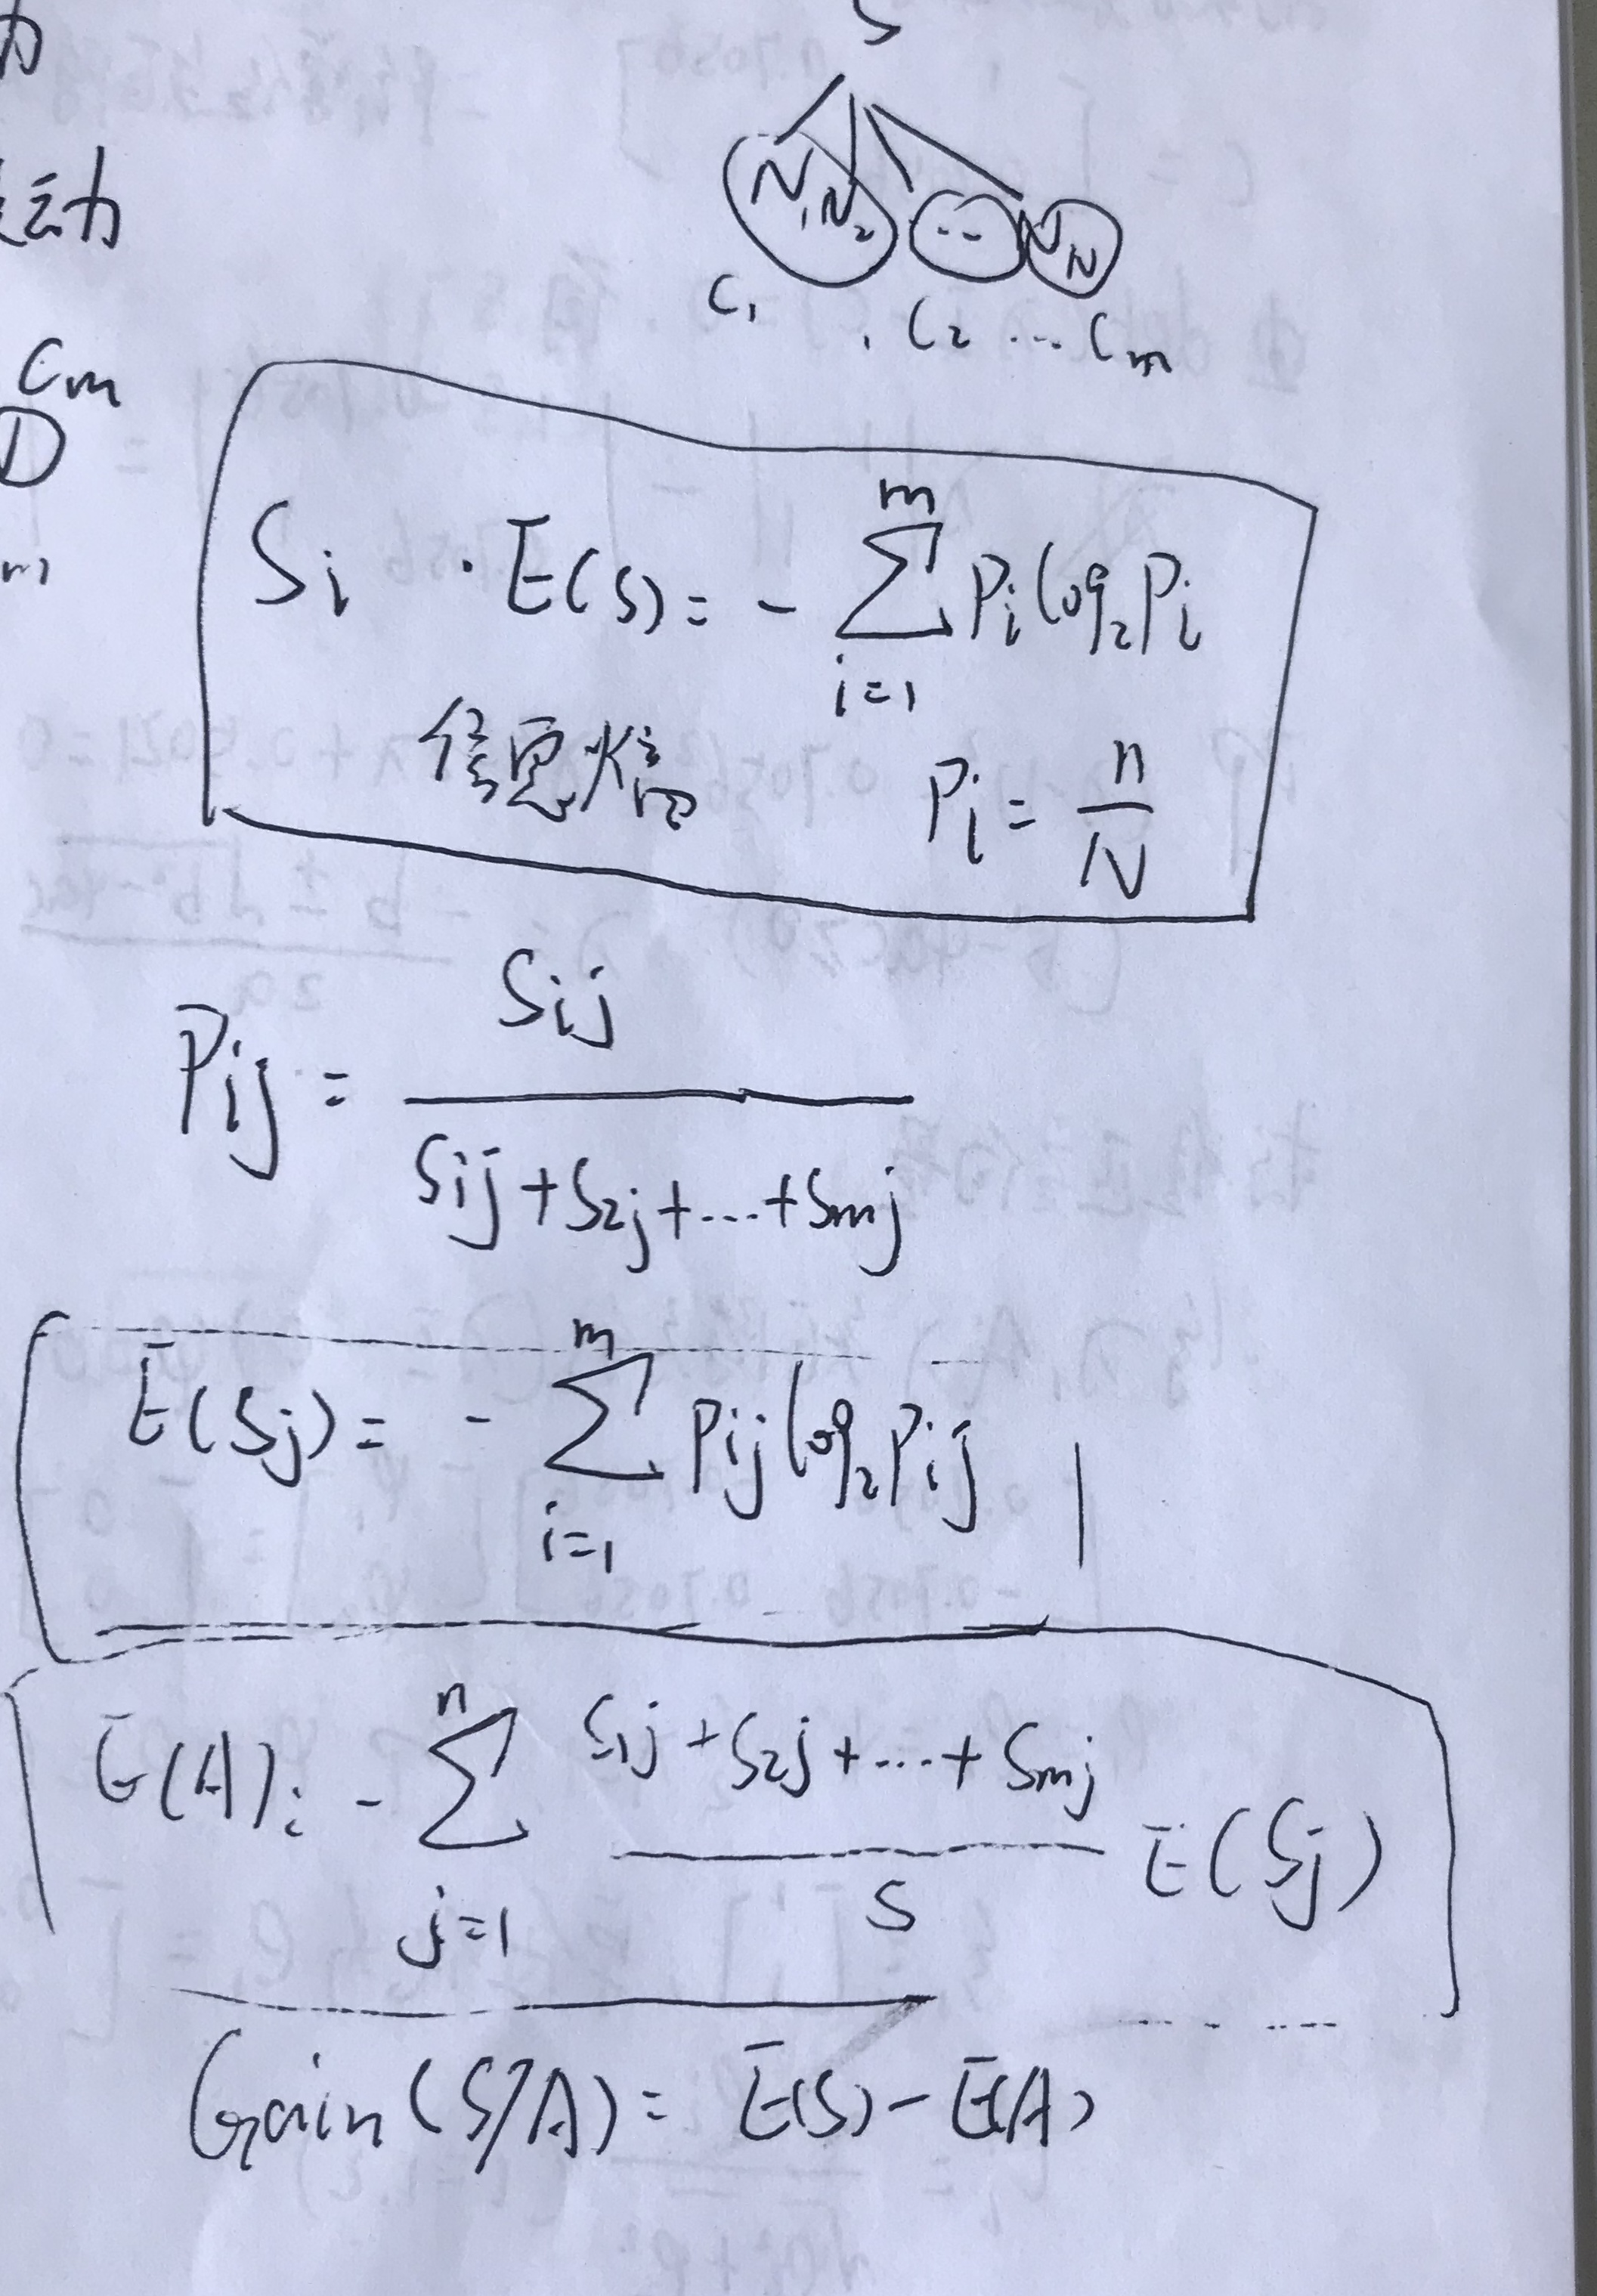 力
S
运动
N₁ N₂ ... N_N
C₁, C₂ ... Cₘ
Cₘ
D
m
Sᵢ · E(S) = - ∑_{i=1}^{m} Pᵢ log₂ Pᵢ
信息熵 Pᵢ = n/N
Pᵢⱼ = Sᵢⱼ / (Sᵢⱼ + S₂ⱼ + ... + Sₘⱼ)
E(Sⱼ) = - ∑_{i=1}^{m} Pᵢⱼ log₂ Pᵢⱼ
E(A) = - ∑_{j=1}^{n} (S₁ⱼ + S₂ⱼ + ... + Sₘⱼ)/S E(Sⱼ)
Gain(S/A) = E(S) - E(A)